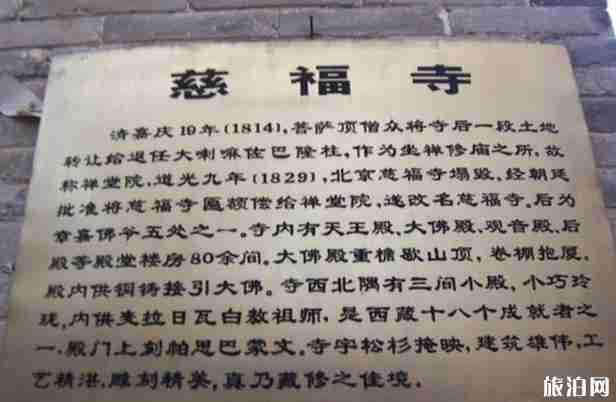 慈福寺
清嘉庆19年(1814),菩萨顶僧众将寺后一段土地
转让给退任大喇嘛佐巴隆柱,作为坐禅修庙之所,故
称禅堂院,道光九年(1829),北京慈福寺塌毁,经朝廷
批准将慈福寺匾额偿给禅堂院,遂改名慈福寺。后为
章嘉佛爷五处之一。寺内有天王殿、大佛殿、观音殿、后
殿等殿堂楼房80余间。大佛殿重檐歇山顶,卷棚抱厦,
殿内供铜铸接引大佛。寺西北隅有三间小殿,小巧玲
珑,内供麦拉日瓦白教祖师,是西藏十八个成就者之
一.殿门上刻帕思巴蒙文。寺宇松杉掩映,建筑雄伟,工
艺精湛,雕刻精美,真乃藏修之佳境.
旅泊网